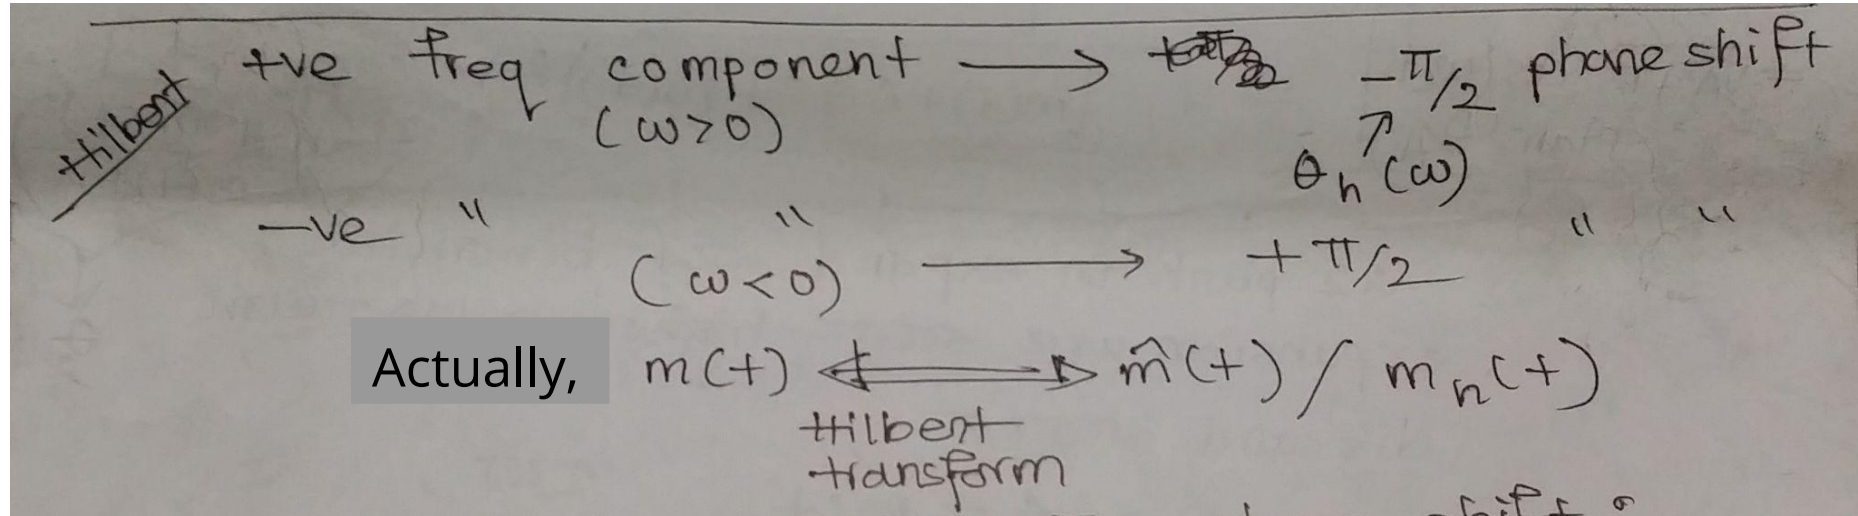 Hilbert
+ve freq component ⟶ -π/2 phase shift
(ω>0)
↗
θh(ω)
-ve " " ⟶ +π/2 " "
(ω<0)
Actually, m(t) ⟺ m̂(t) / mh(t)
Hilbert
transform